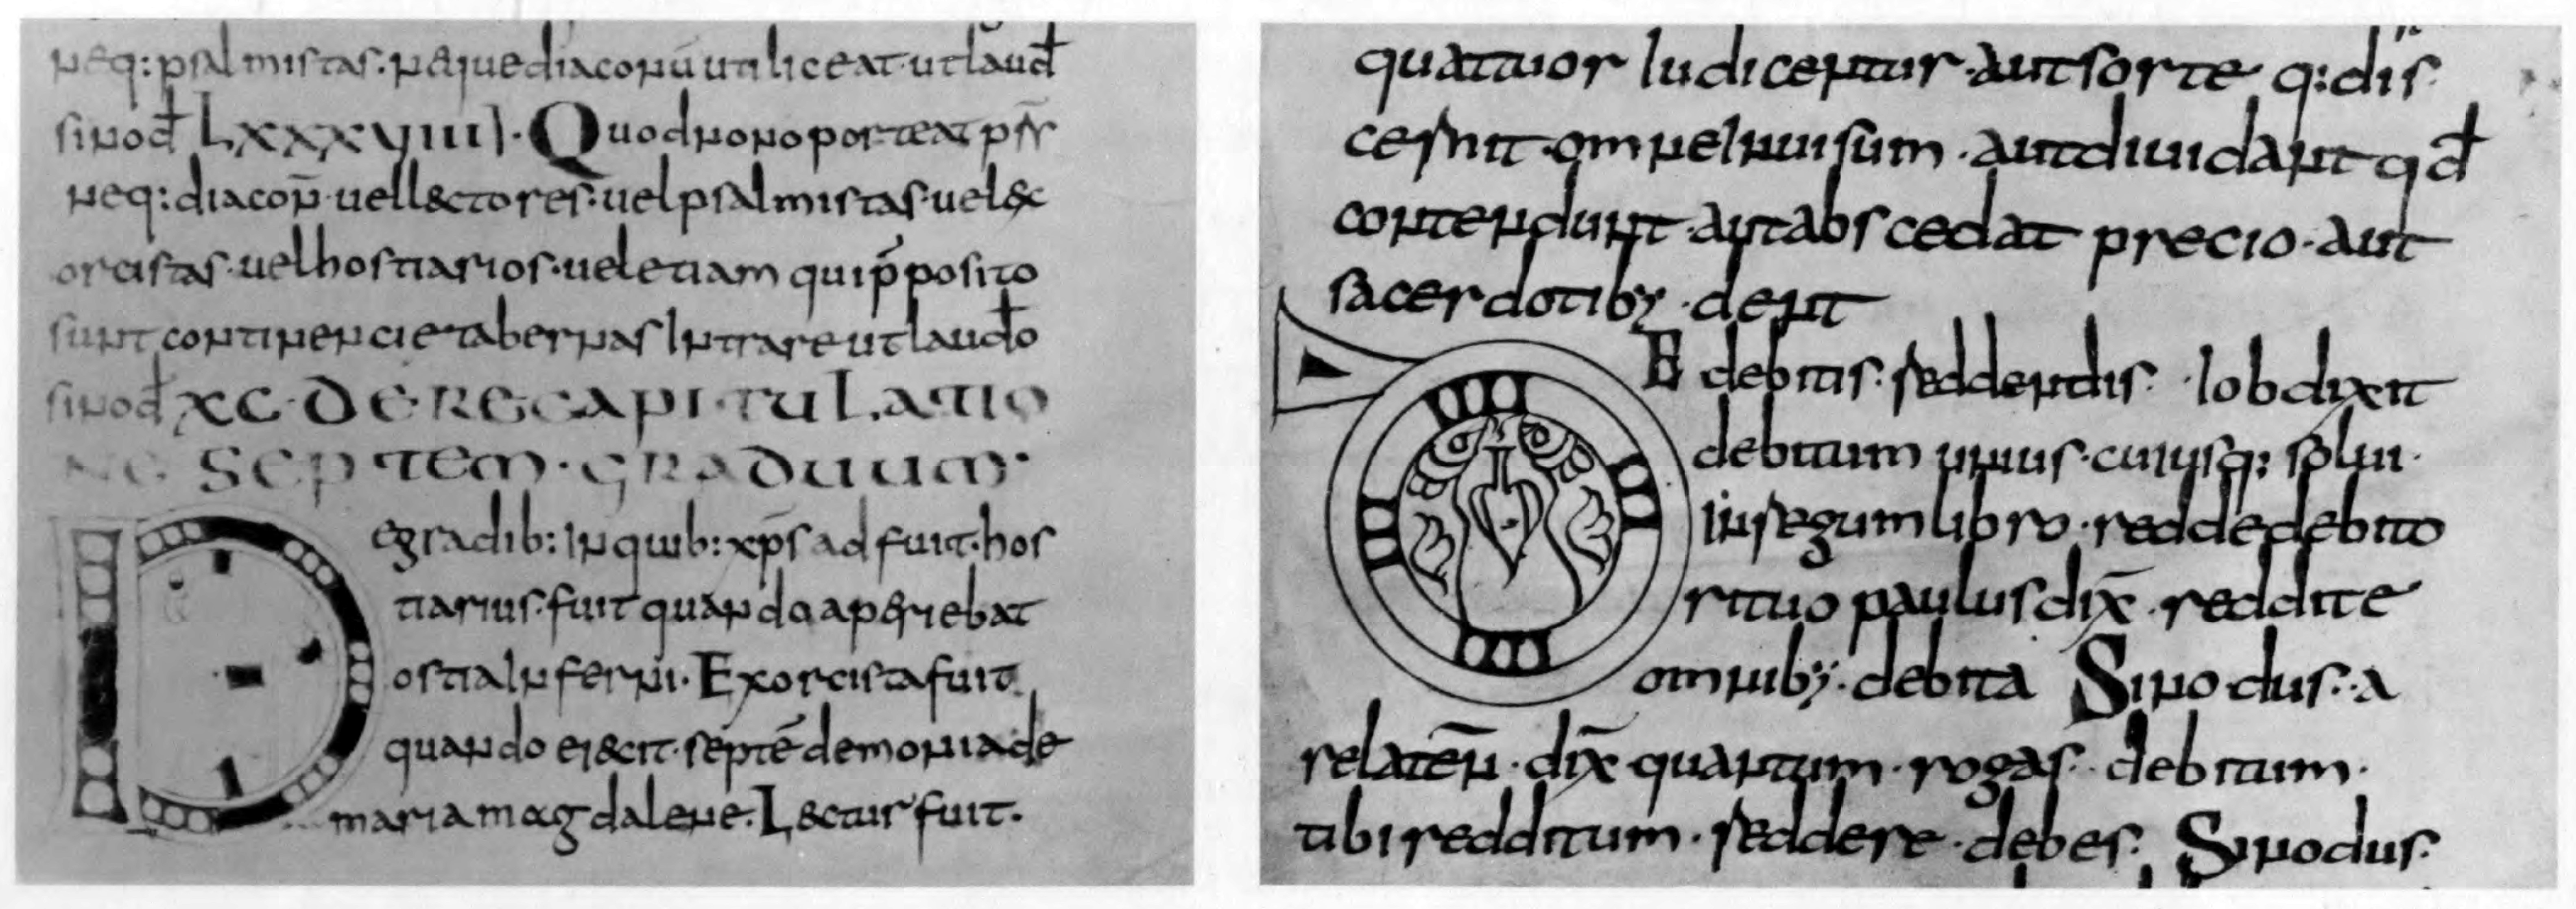 neq: psalmistas. neque diaconū uti liceat. ut laud̄
sinod̄ LXXXVIIII. Quod non oporteat p̄sr̄
neq: diacon̄ uel l&ctores. uel psalmistas. uel &c
orcistas. uel hostiarios. uel etiam qui p̄posito
sunt continencie tabernas Intrare ut laud̄o
sinod̄ XC. DE RECAPITULATIO
NE SEPTEM. GRADUUM.
egradib: In quib: xp̄s adfuit. hos
tiarius. fuit quando ap&riebat
ostia Inferni. Exorcista fuit
quando ei&cit. septē demonia de
maria magdalene. L&ctur fuit.
quattuor Iudicentur. aut sorte q: dis
cernit. omnel inuisum. aut diuidant qd̄
contendunt. aut abscedat precio. aut
sacerdotib; . dent
DE debitis. reddendis. Iob dixit
debitum unius. cuiusq: solui.
In regum libro. redde debito
ri tuo paulus dix̄. reddite
omnib; . debita Sinodus. a
relatēn. dix̄ quantum. rogas. debitum.
tibi redditum. reddere. debes. Sinodus.